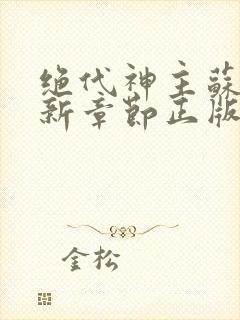 绝代神主蘇
新章節正版
金松